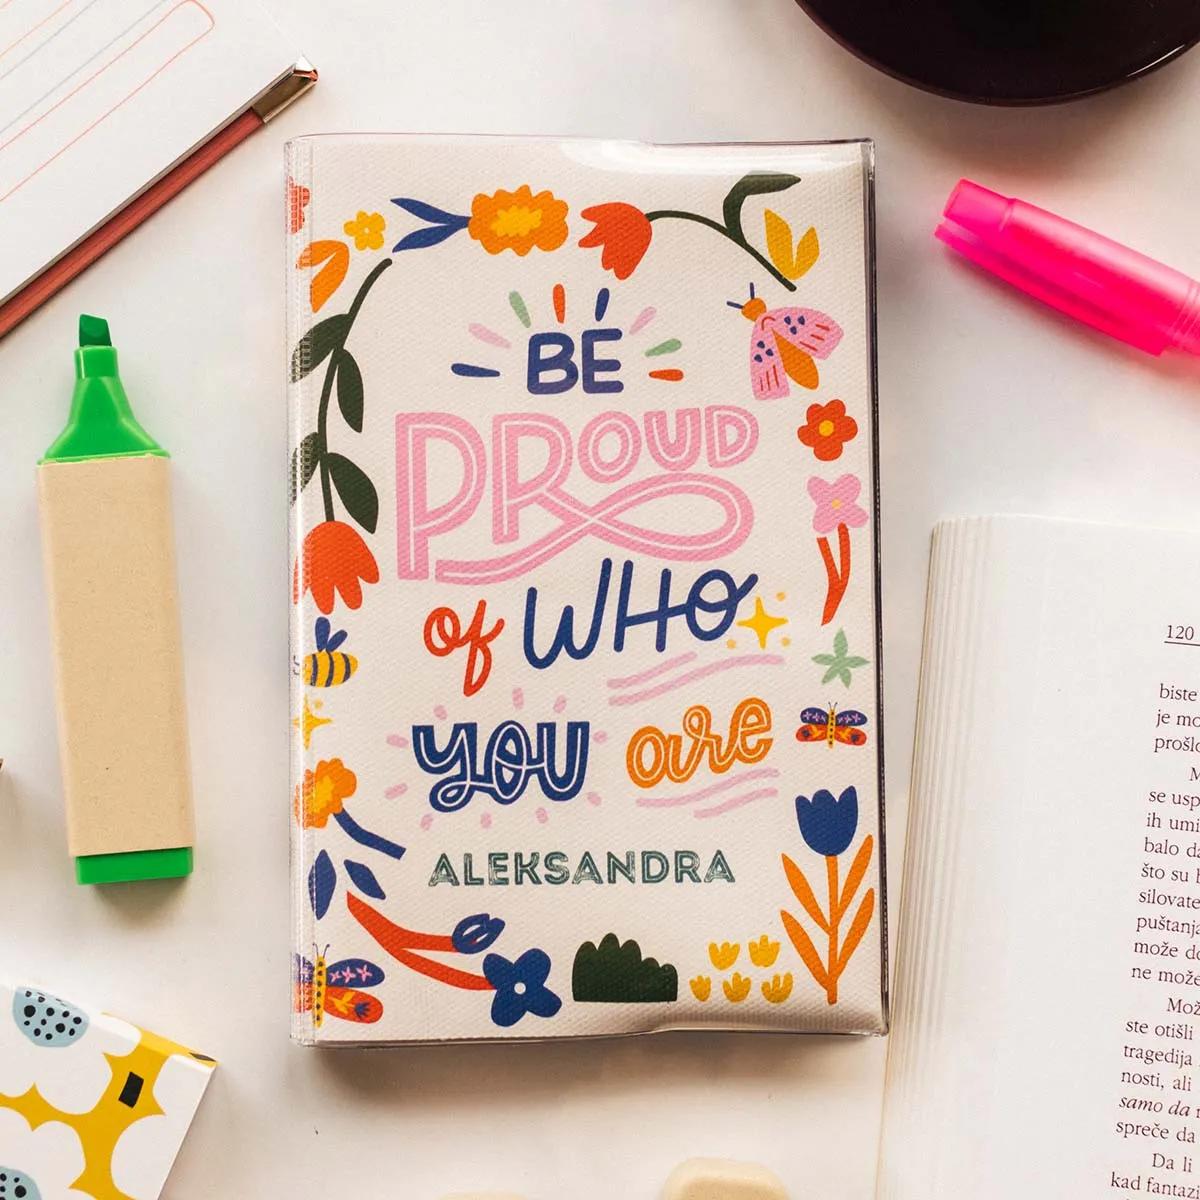 BE
PROUD
of WHO
you are
ALEKSANDRA
120
biste
je mo
prošlo
M
se usp
ih umi
balo da
što su b
silovate
puštanja
može do
ne može
Mož
ste otišli
tragedija
nosti, ali
samo da
spreče da
Da li
kad fantazi